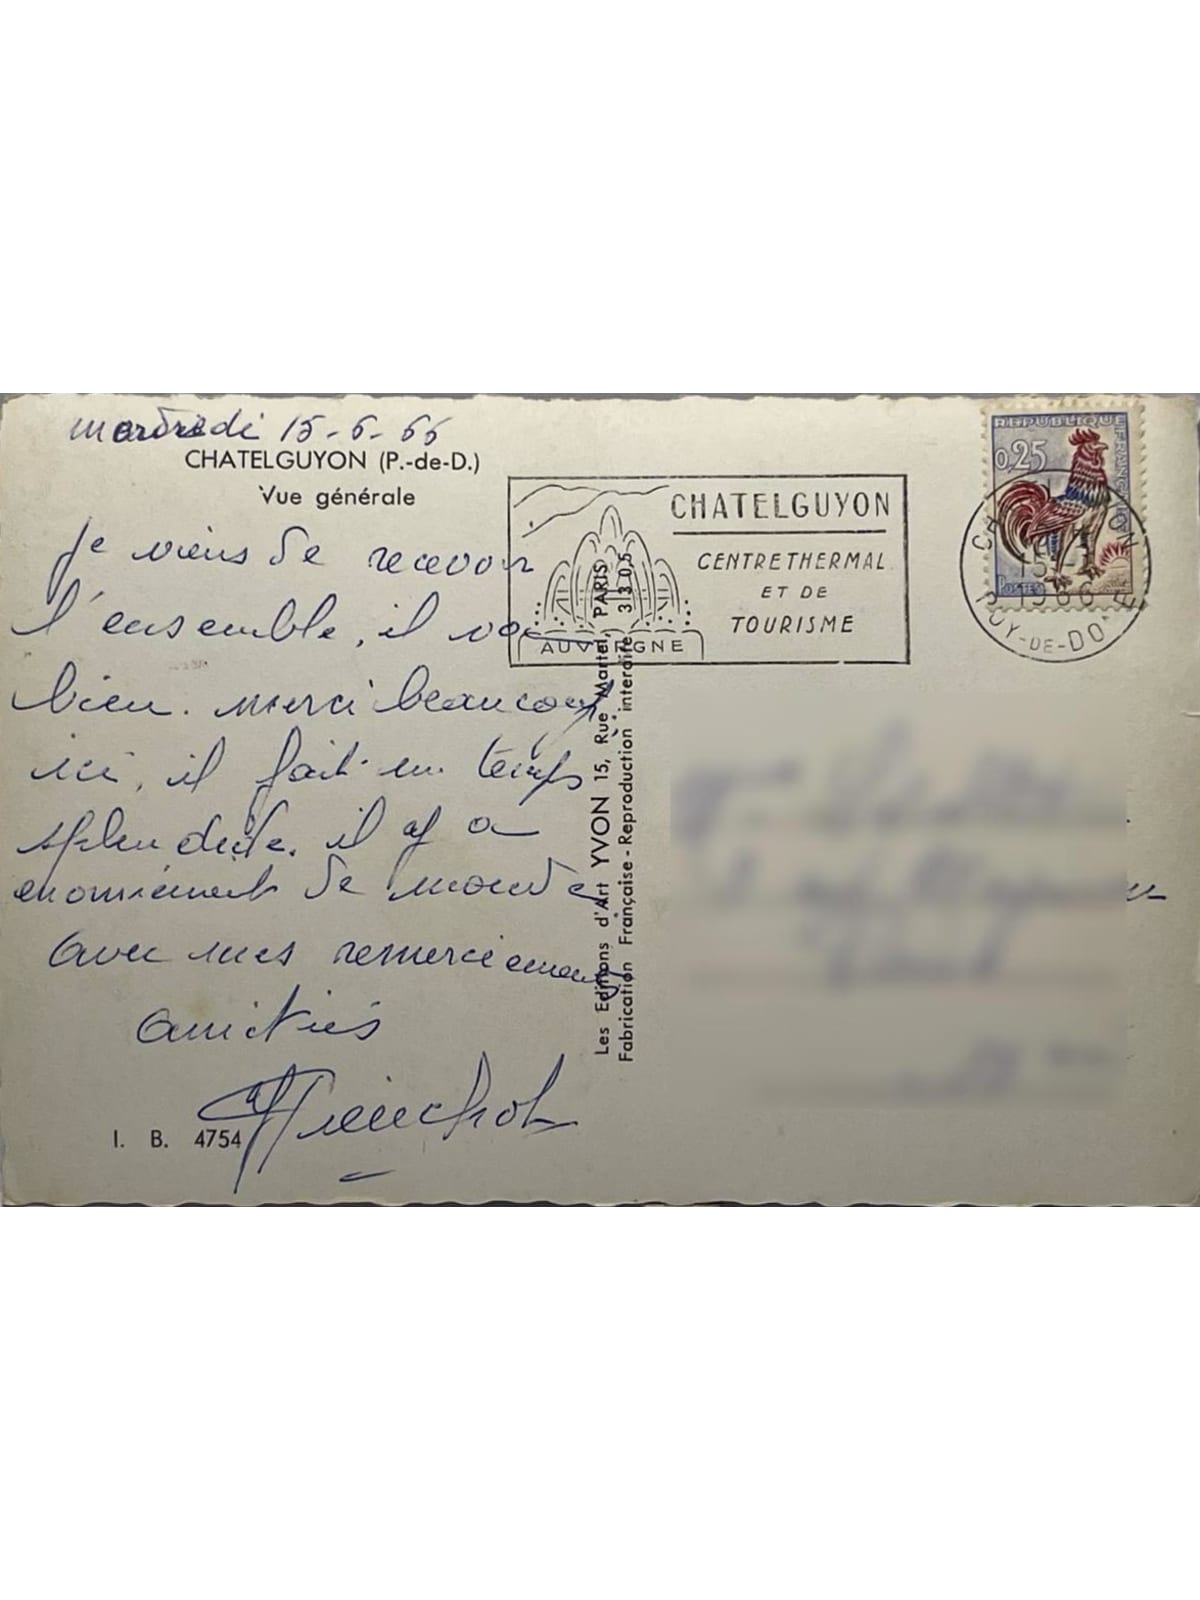 mercredi 15-6-66
CHATELGUYON (P.-de-D.)
Vue générale
je viens de recevoir
l'ensemble, il va
bien. merci beaucoup
ici, il fait un temps
splendide. il y a
enormement de monde
avec mes remerciements
amitiés
I. B. 4754
Les Editions d'Art YVON 15, Rue Martel, PARIS
Fabrication Française - Reproduction interdite 3305
CHATELGUYON
CENTRE THERMAL
ET DE
TOURISME
AUVERGNE
REPUBLIQUE FRANÇAISE
0,25
POSTES
15-
1966
PUY-DE-DOME